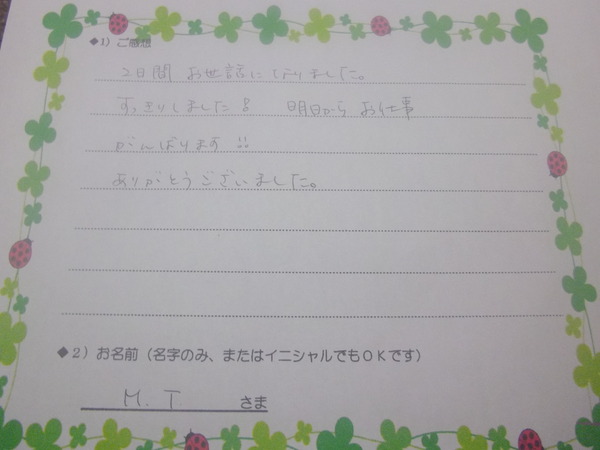 ◆1）ご感想
2日間 お世話になりました。
すっきりしました!! 明日から お仕事
がんばります!!
ありがとうございました。
◆2）お名前（名字のみ、またはイニシャルでもＯＫです）
M. T さま